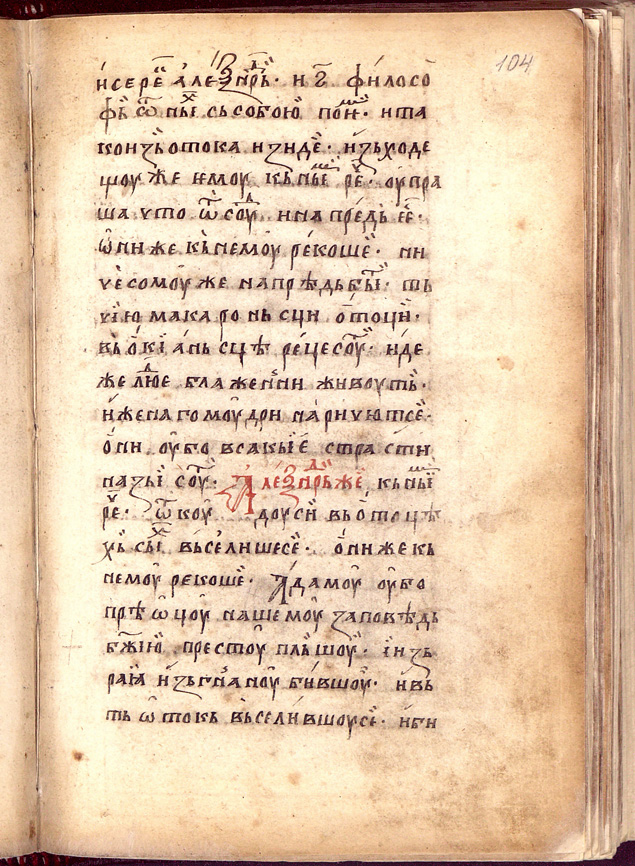 104
и сере алеѯандрь · и г҃ · филосо
фь ѿ ныⷯ сь собою поимь · и та
ко изь отока изиде · изьходе
щоу же емоу кь ныимь реⷱ · оупра
ша что ѿ соуть и на предь ее ·
ѡни же кь немоу рекоше · ни
чесомоу же напрѣдь быти · ть
чїю макаронь сци отоци ·
вь окїань сцѣ реце соуть · иде
же людїе блаженни живоуть ·
иже нагомоудри наричють се ·
они оубо всакыїе страсти
нази соуть · Алеѯандрь же кь ныимь
реⷱ · ѿкоудоу си вь отоцѣ
хь сыⷯ вьселише се · они же кь
немоу рекоше · Адамоу оубо
прѣѡцоу нашемоу заповѣдь
бж҃їю прѣстоупльшоу · и изь
раїа изьгнаноу бившоу · и вь
ть ѡтокь вьселившоу се · и би